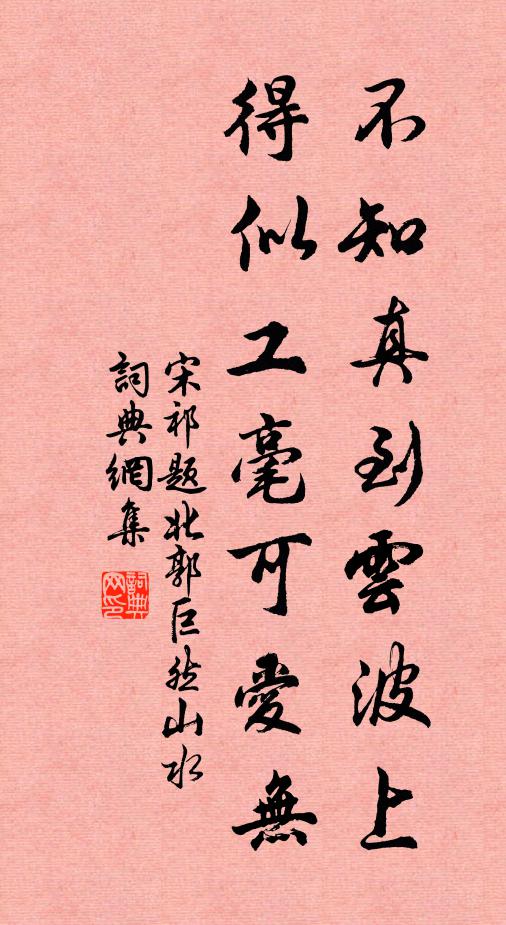 不知真到雲波上
得似工毫可愛無
宋祁题北郭巨然山水
詞典網集
詞典網印